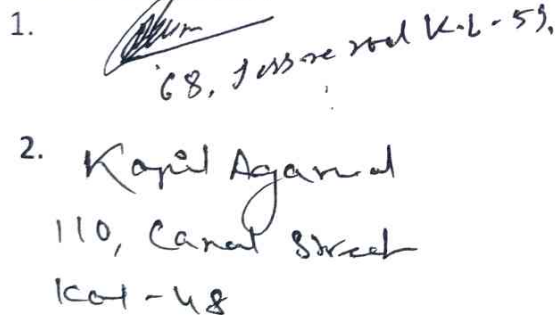 1.
68, Jessore road Kol-55,
2. Kapil Agarwal
110, Canal Street
Kol-48